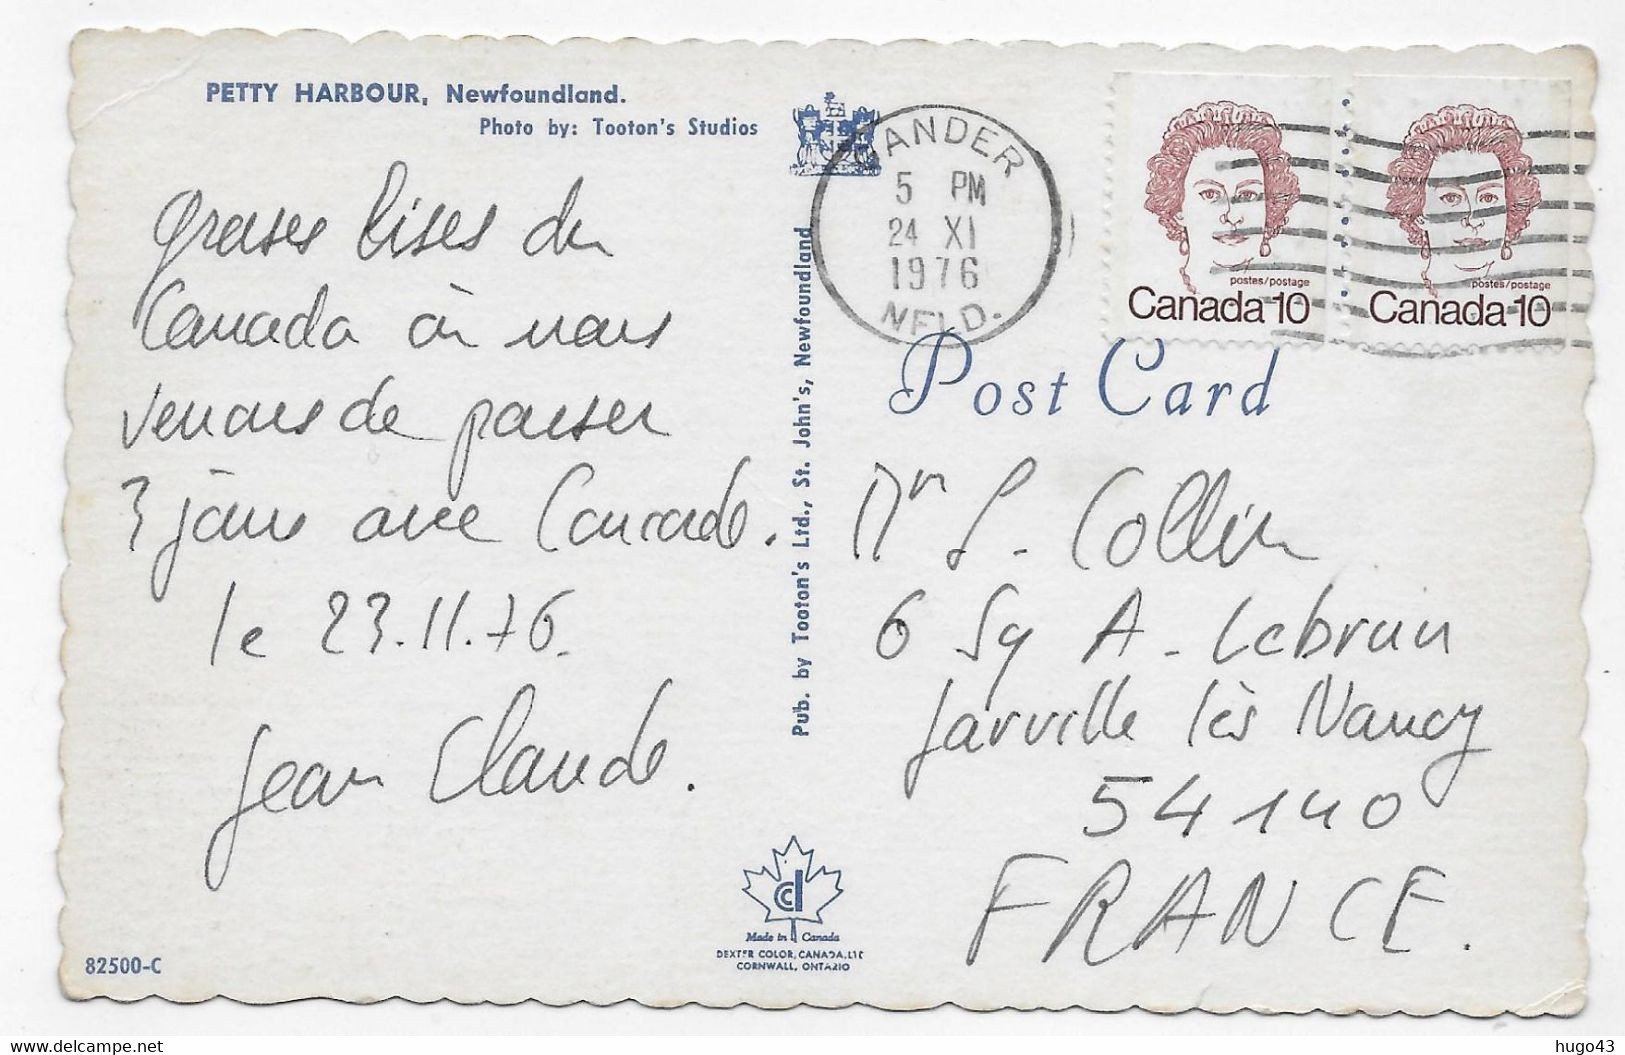 PETTY HARBOUR, Newfoundland.
Photo by: Tooton's Studios
grosses bises du
Canada où nous
venons de passer
3 jours avec Concorde.
le 23.11.76.
Jean Claude.
82500-C
Pub. by Tooton's Ltd., St. John's, Newfoundland
Made in Canada
DEXTER COLOR, CANADA, LTD
CORNWALL, ONTARIO
GANDER
5 PM
24 XI
1976
NFLD.
postes/postage
Canada 10
postes/postage
Canada 10
Post Card
Mr S. Collin
6 Sq A. Lebrun
Jarville lès Nancy
54140
FRANCE.
hugo43